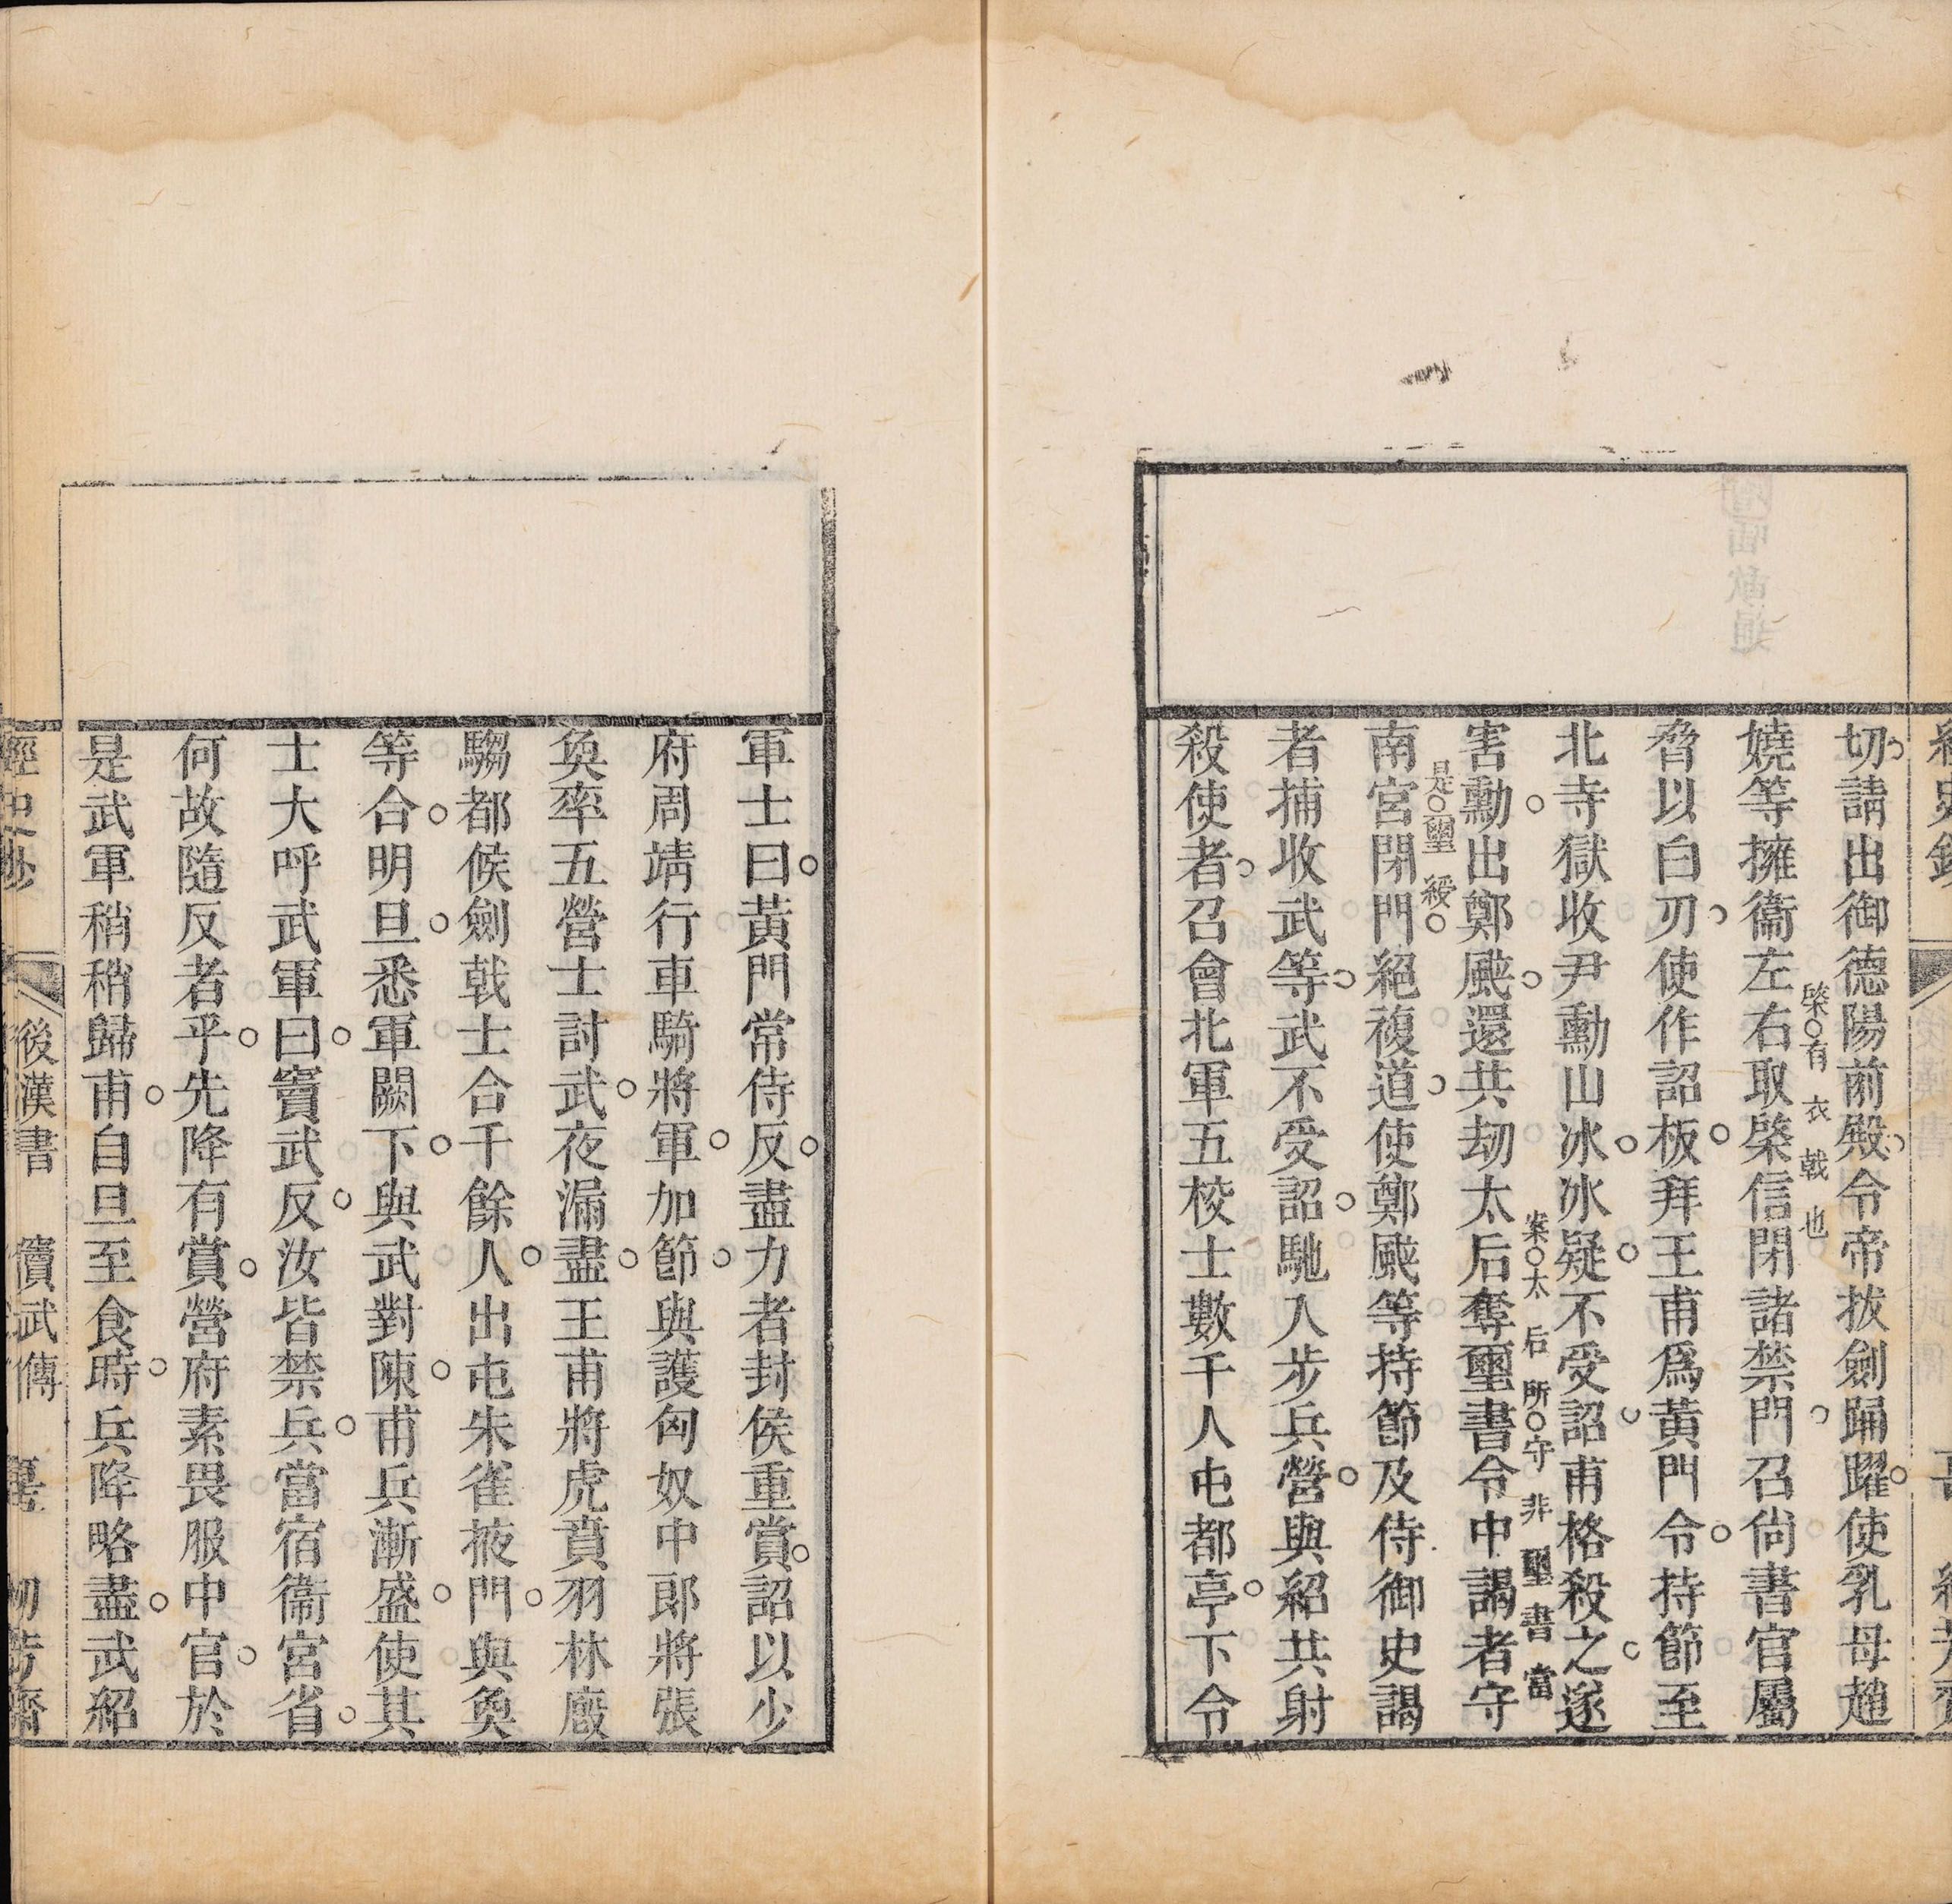 切請出御德陽前殿令帝拔劍踊躍使乳母趙
嬈等擁衞左右取棨信閉諸禁門召尙書官屬
棨有衣戟也
脅以白刃使作詔板拜王甫爲黃門令持節至
北寺獄收尹勳山冰冰疑不受詔甫格殺之遂
案太后所守非璽書當
害勳出鄭颯還共劫太后奪璽書令中謁者守
是璽綬
南宮閉門絕複道使鄭颯等持節及侍御史謁
者捕收武等武不受詔馳入步兵營與紹共射
殺使者召會北軍五校士數千人屯都亭下令
軍士曰黃門常侍反盡力者封侯重賞詔以少
府周靖行車騎將軍加節與護匈奴中郎將張
奐率五營士討武夜漏盡王甫將虎賁羽林廄
騶都候劍戟士合千餘人出屯朱雀掖門與奐
等合明旦悉軍闕下與武對陳甫兵漸盛使其
士大呼武軍曰竇武反汝皆禁兵當宿衞宮省
何故隨反者乎先降有賞營府素畏服中官於
是武軍稍稍歸甫自旦至食時兵降略盡武紹
後漢書 竇武傳